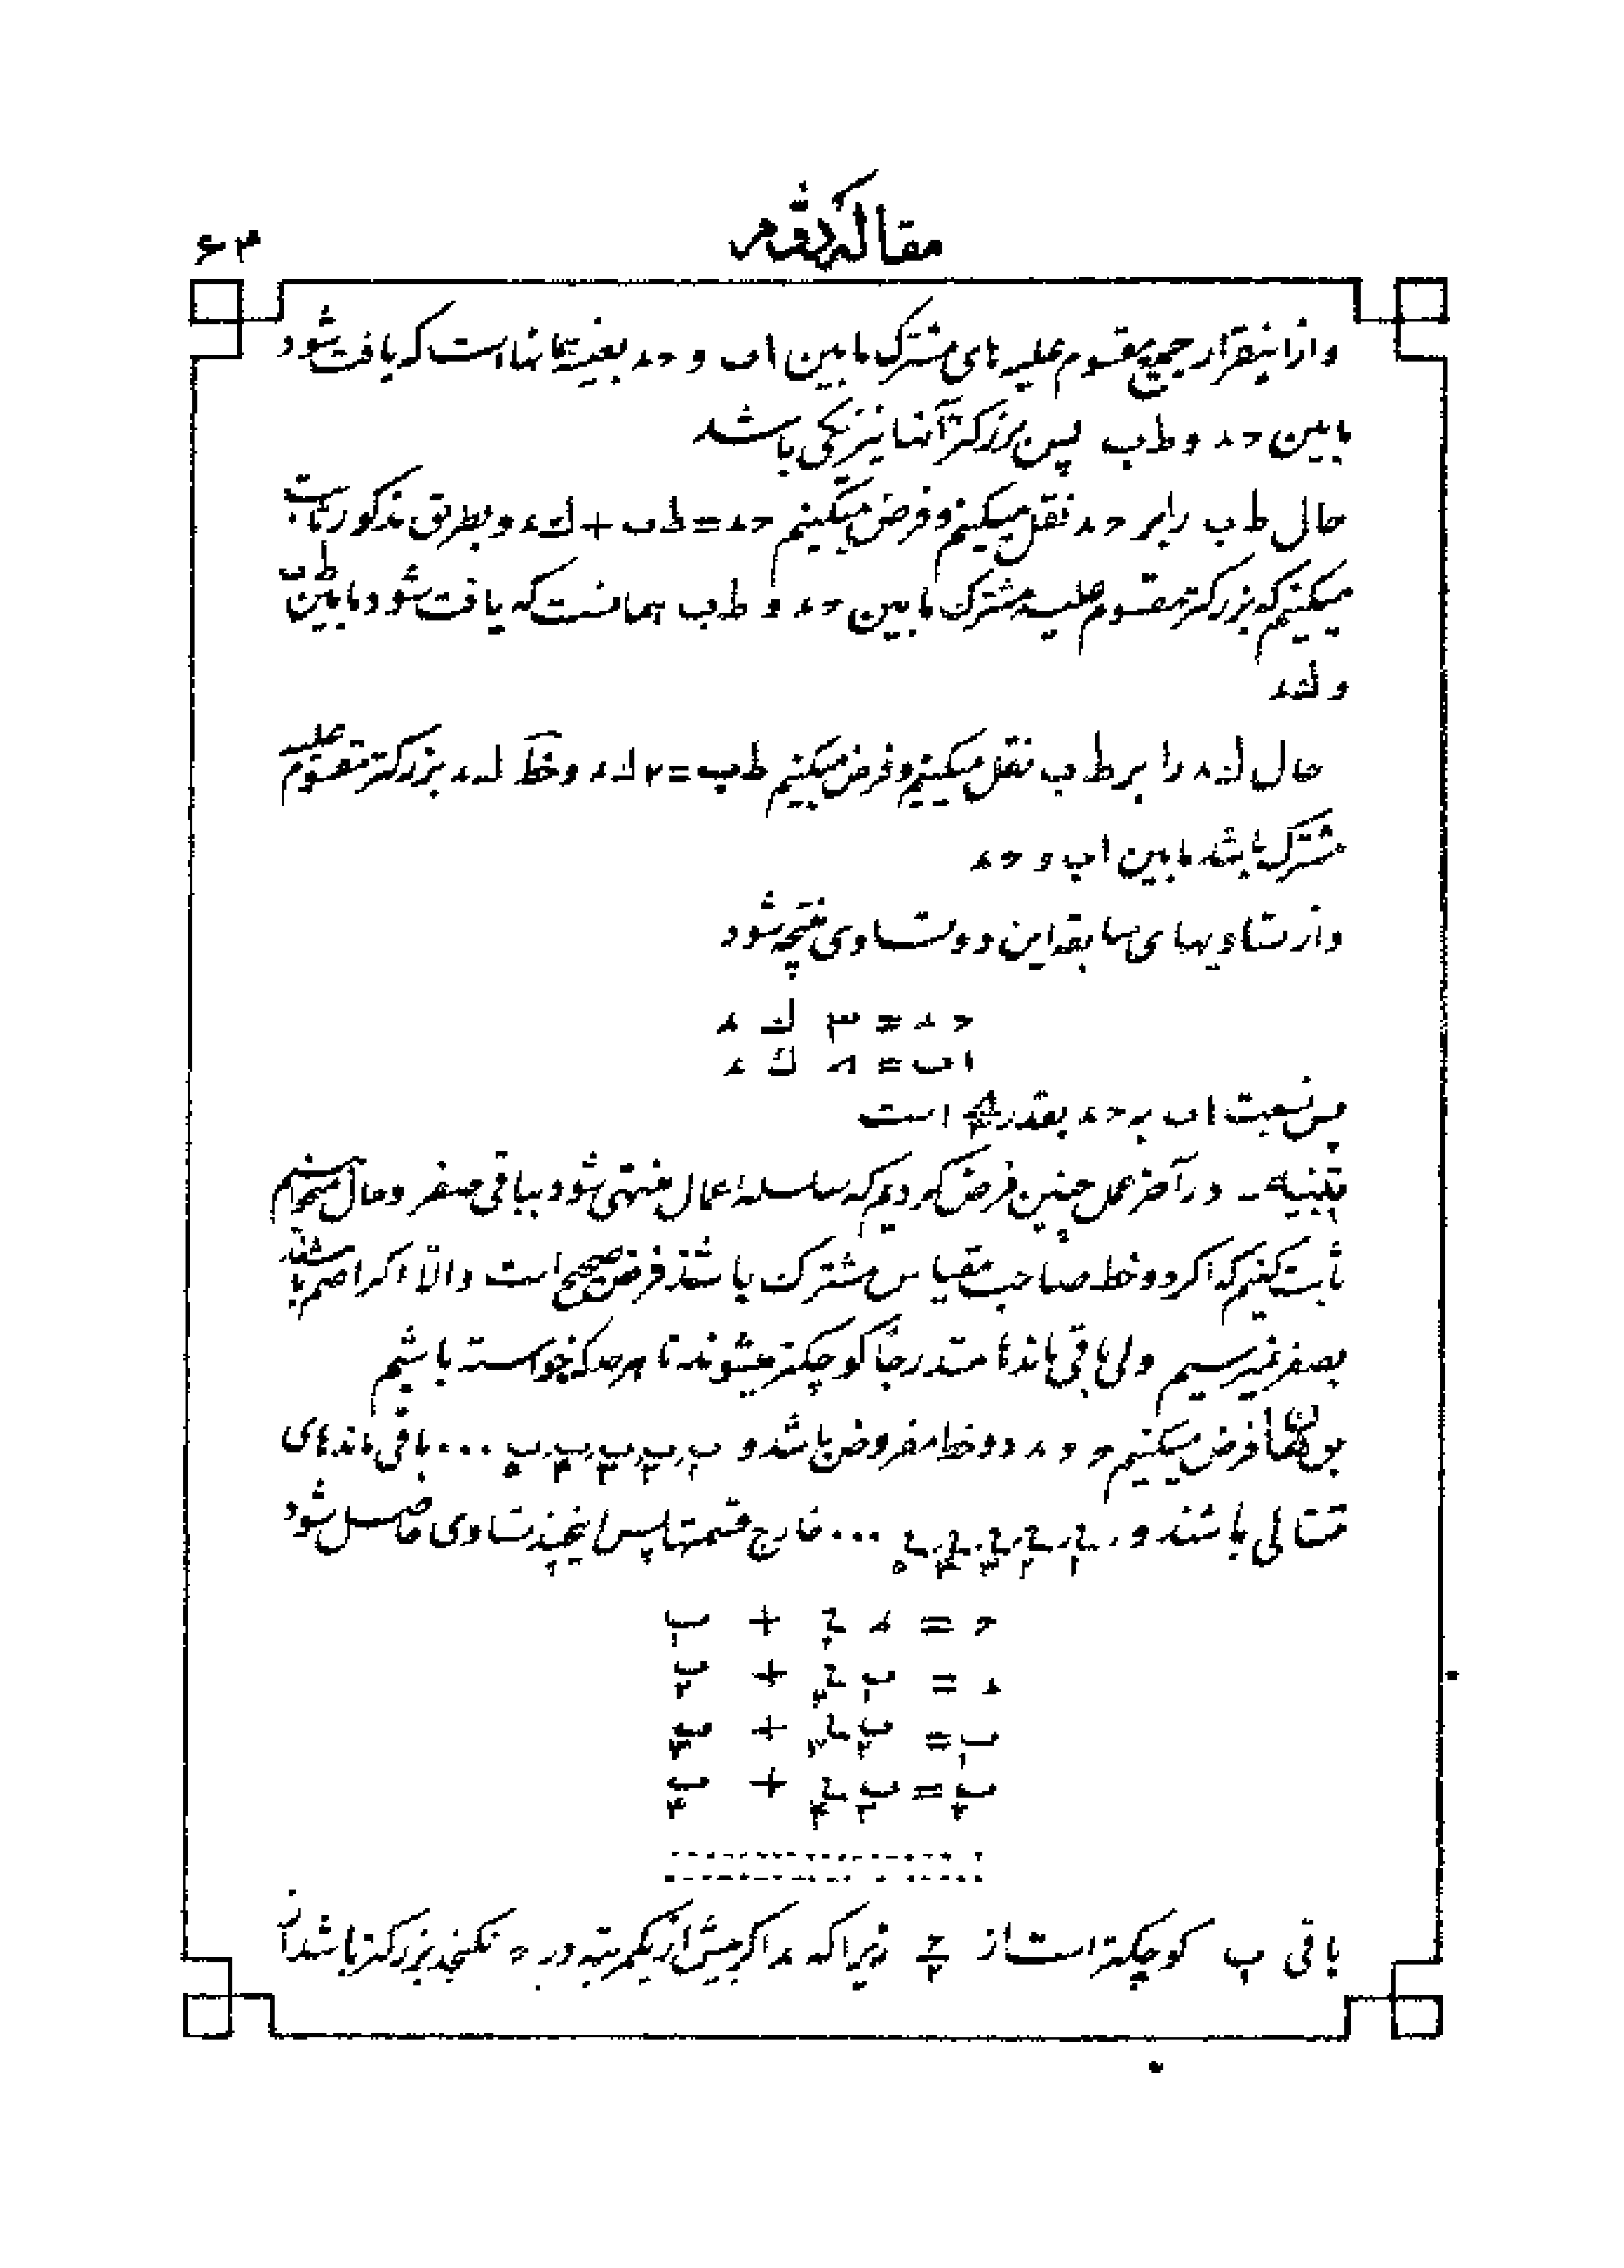 مقاله دوّم
۶۳
و ازاینقرار جمیع مقسوم علیه های مشترک مابین اب و حد بعینه همانها است که یافت شود
مابین حد و ط ب پس بزرگتر آنها نیز یکی باشد
حال ط ب را بر حد نقل میکنیم و فرض میکنیم حد = ط ب + ک د و بطریق مذکور ثابت
میکنیم که بزرگتر مقسوم علیه مشترک مابین حد و ط ب همانست که یافت شود مابین ط ب
و ک د
حال ک د را بر ط ب نقل میکنیم و فرض میکنیم ط ب = ۲ ک د و خط ک د بزرگتر مقسوم علیه
مشترک باشد مابین اب و حد
و از تساویهای سابقه این دو تساوی نتیجه شود
حد = ۳ ک د
اب = ۸ ک د
پس نسبت اب به حد بقدر ۸/۳ است
تنبیه - در آخر عمل چنین فرض کردیم که سلسله اعمال منتهی شود بباقی صفر و حال میخواهم
ثابت کنیم که اگر دو خط صاحب مقیاس مشترک باشند فرض صحیح است والّا اگر اصم باشند
بصفر نمیرسیم ولی باقی ماندها متدرجاً کوچکتر میشوند تا هر حد که خواسته باشیم
فرض میکنیم ح و د دو خط مفروض باشد و ب۱ ب۲ ب۳ ب۴ ب۵ ... باقی ماندهای
متتالی باشند و ... خارج قسمتها پس اینچند تساوی حاصل شود
ح = د خ۱ + ب۱
د = ب۱ خ۲ + ب۲
ب۱ = ب۲ خ۳ + ب۳
ب۲ = ب۳ خ۴ + ب۴
باقی ب کوچکتر است از ح/۲ زیرا که د اگر بیش از یکمرتبه در ح نگنجد بزرگتر باشد از